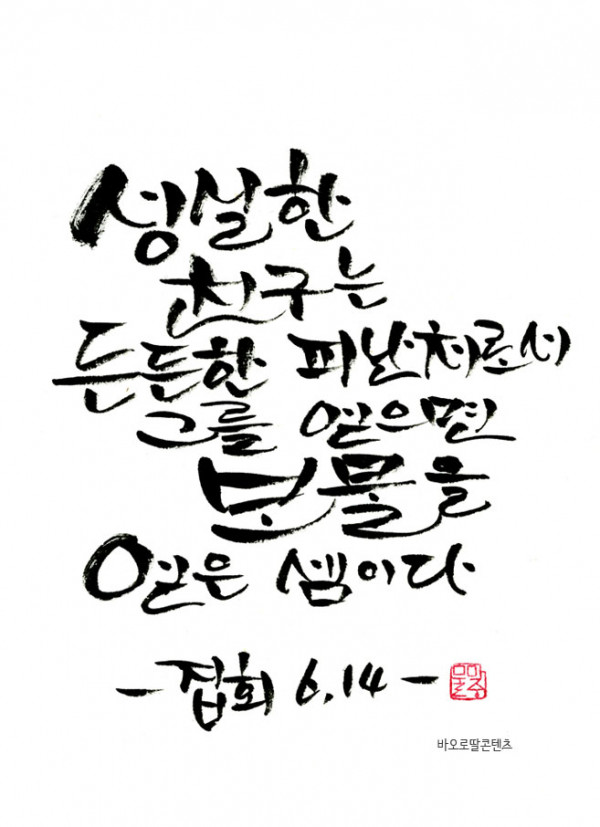 성실한
친구는
든든한 피난처로서
그를 얻으면
보물을
얻은 셈이다
-집회 6,14-
바오로딸콘텐츠